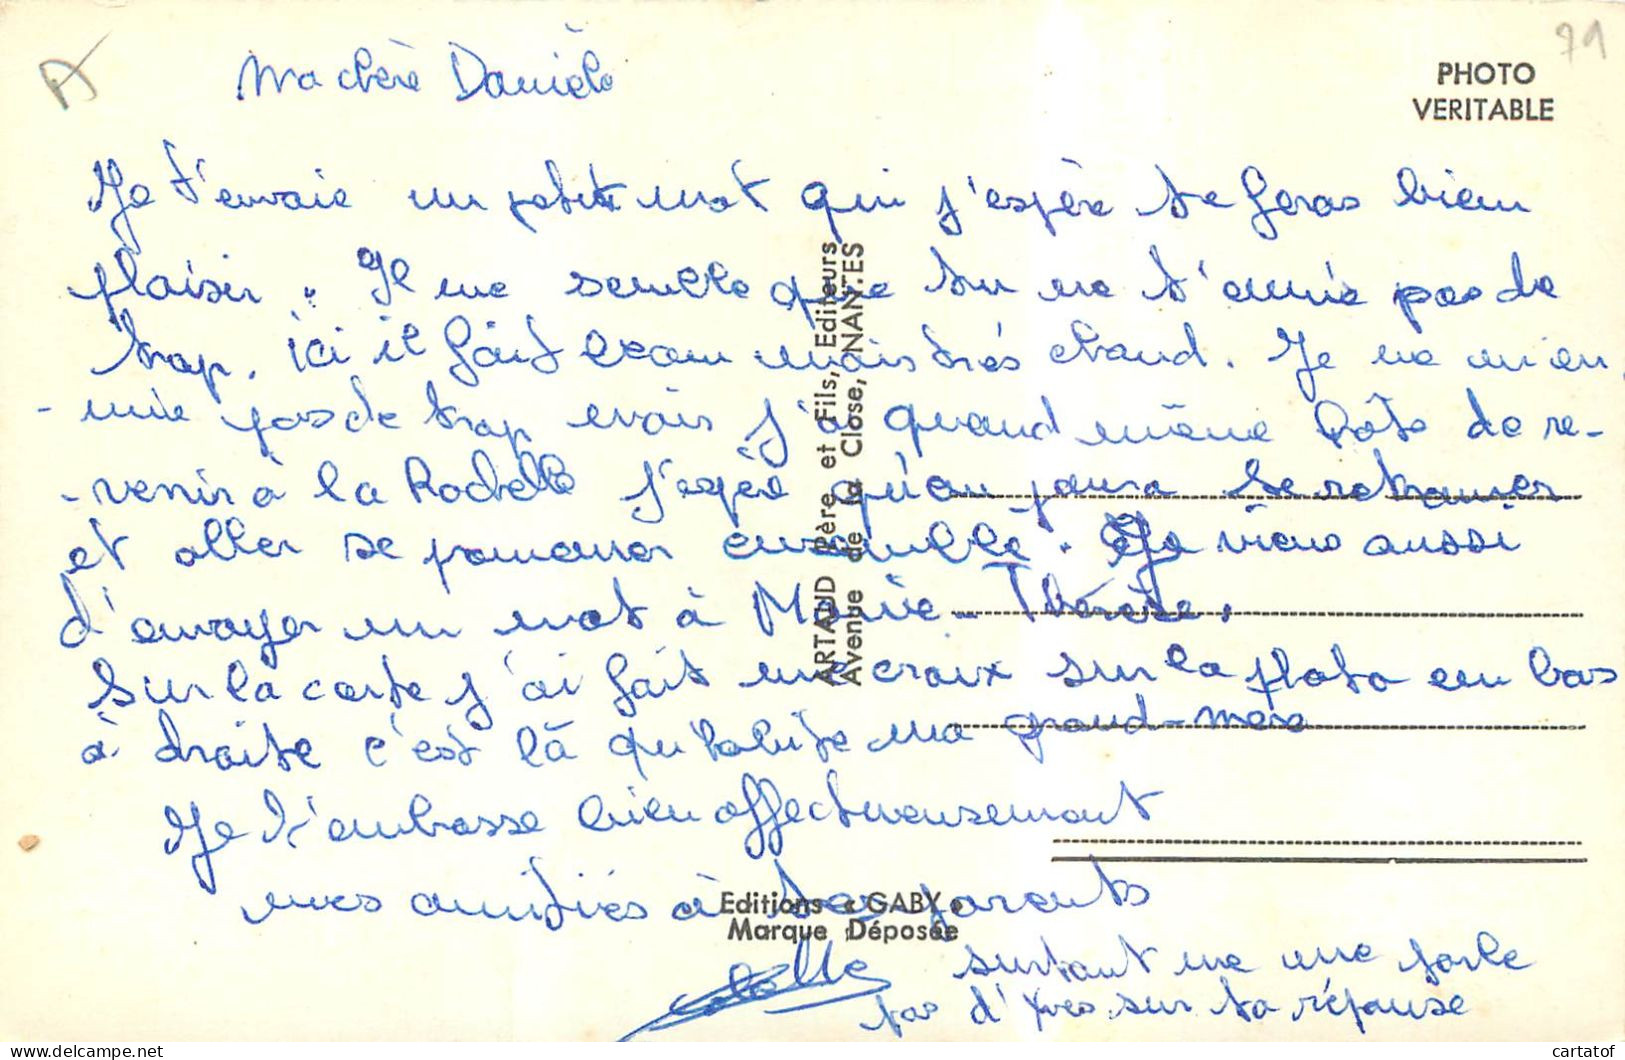 79
PHOTO
VERITABLE
Ma chère Danièle
Je t'envoie un petit mot qui j'espère te feras bien
plaisir. Il me semble que tu ne t'ennuie pas de
trop. ici il fait beau mais très chaud. Je ne m'en
-nuie pas de trop mais j'ai quand même hâte de re-
-venir à la Rochelle j'espère qu'on poura se retrouver
et aller se promener ensemble. Je viens aussi
d'envoyer un mot à Marie-Thérèse.
Sur la carte j'ai fait une croix sur la photo en bas
à droite c'est là qu'habite ma grand-mère
Je t'embrasse bien affectueusement
mes amitiés à tes parents
surtout ne me parle
pas d'Yves sur ta réponse
ARTAUD Père et Fils, Editeurs
Avenue de la Close, NANTES
Editions « GABY »
Marque Déposée
cartatof